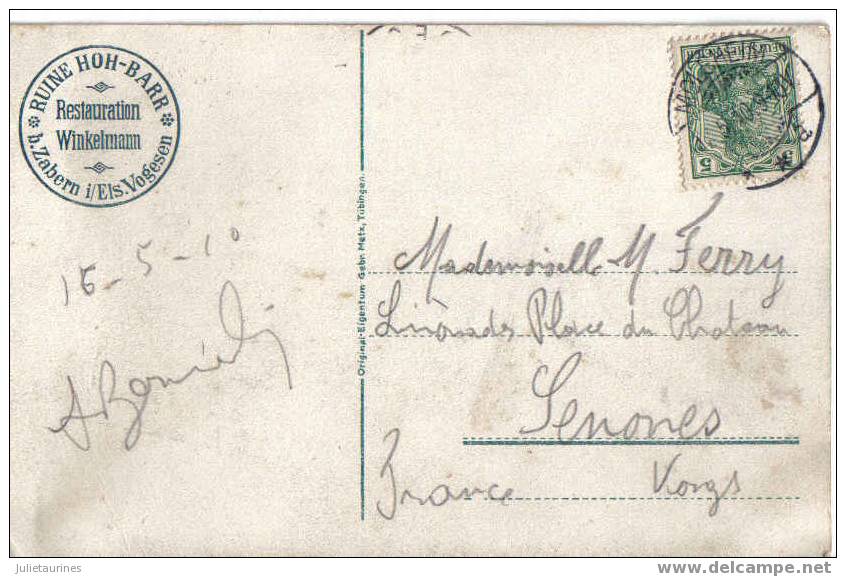 RUINE HOH-BARR
Restauration
Winkelmann
b.Zabern i/Els.Vogesen
16-5-10
Original-Eigentum Gebr. Metz, Tübingen.
DEUTSCHES REICH
5
Mademoiselle M. Ferry
Place du Chateau
Senones
France Vosgs
Julietaurines
www.delcampe.net